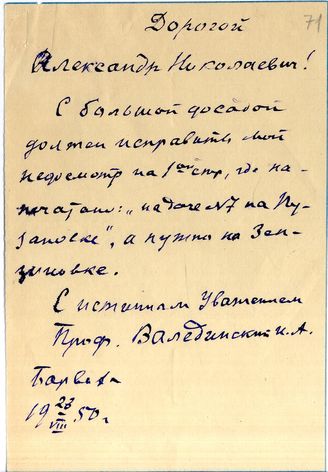 71
Дорогой
Александр Николаевич!
С большой досадой
должен исправить мой
недосмотр на 1ой стр, где на-
печатано: "на даче №7 на Пу-
зановке", а нужно на Зен-
зиновке.
С истинным Уважением
Проф. Валединский И.А.
Барвиха
19 23/VIII 50г